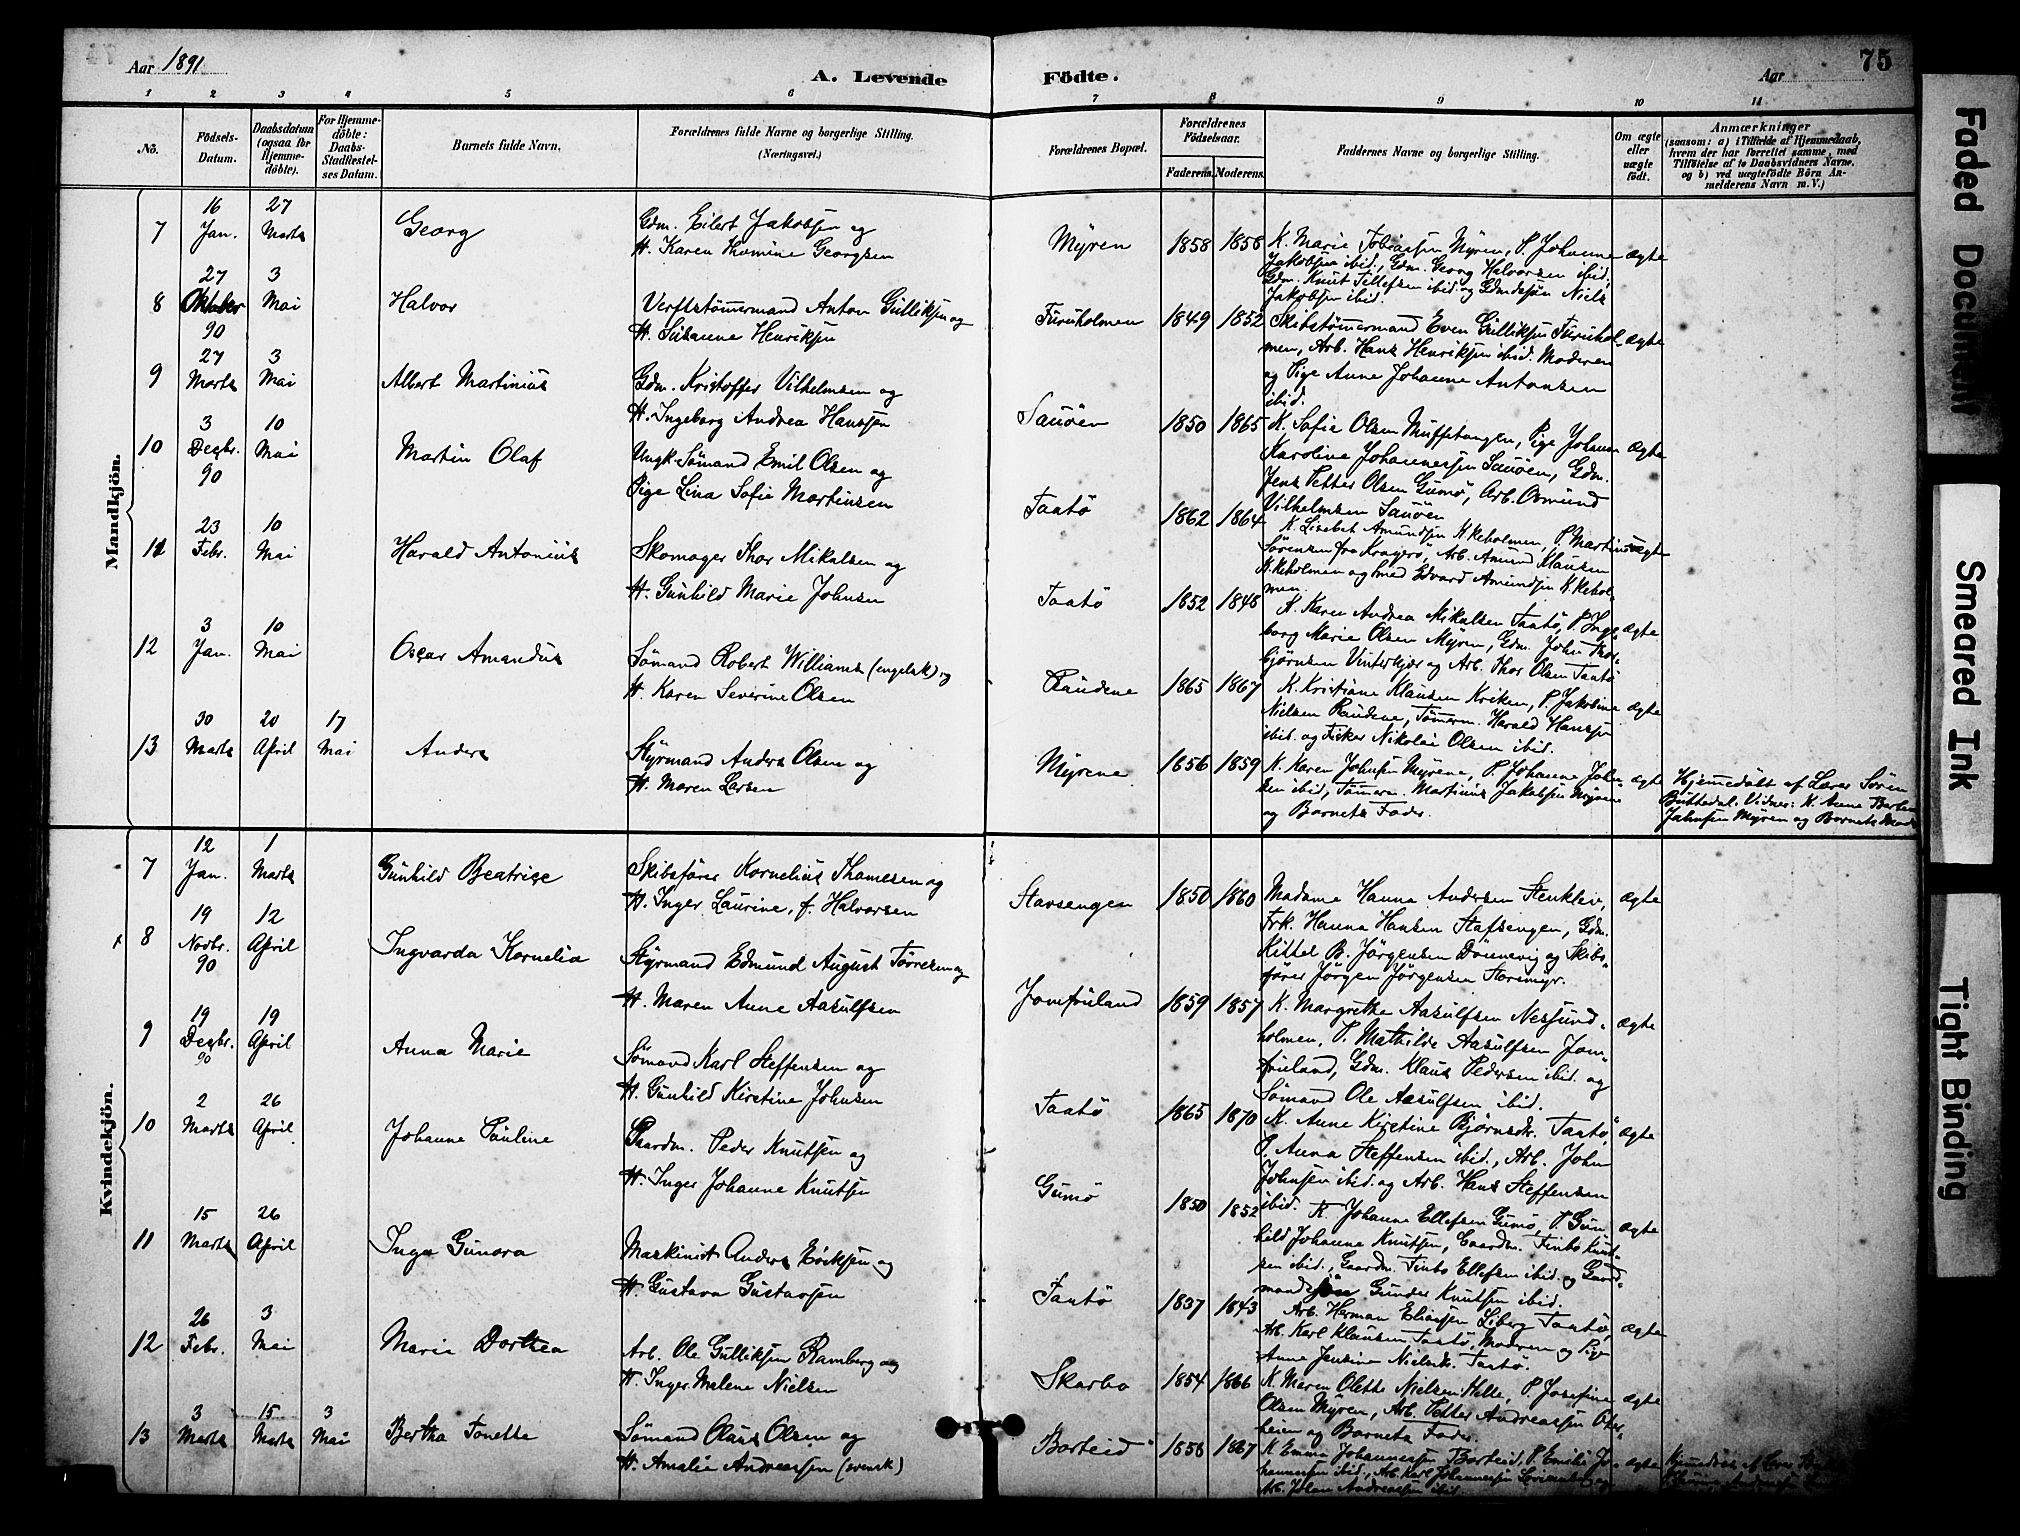 Aar 1891
A. Levende Födte.
Aar
75
1 2 3 4 5 6 7 8 9 10 11
No.
Födsels-Datum.
Daabsdatum (ogsaa for Hjemme-döbte).
For Hjemme-döbte: Daabs-Stadfæstel-ses Datum.
Barnets fulde Navn.
Forældrenes fulde Navne og borgerlige Stilling.
(Næringsvei.)
Forældrenes Bopæl.
Forældrenes Födselsaar.
Faderens. Moderens.
Faddernes Navne og borgerlige Stilling.
Om ægte eller uægte födt.
Anmærkninger
(saasom: a) i Tilfælde af Hjemmedaab, hvem der har forrettet samme, med Tilföielse af to Daabsvidners Navne, og b) ved uægtefödte Börn An-melderens Navn m. V.)
Mandkjön.
7 16 Jan. 27 Marts Georg
Gdm. Eilert Jakobsen og
H. Karen Thomine Georgsen
Myren 1858 1858
K. Marie Tobiassen Myren, P. Johanne ægte
Jakobsen ibid., Gdm. Georg Halvorsen ibid,
Gdm. Knut Tellefsen ibid og Gdmdsøn Niels
Jakobsen ibid.
8 27 Oktober 90 3 Mai Halvor
Verftstømermand Anton Gulliksen og
H. Susanne Henriksen
Furuholmen 1849 1852
Skibstømermand Even Gulliksen Furuhol- ægte
men, Arb. Hans Henriksen ibid. Moderen
og Pige Anne Johanne Antonsen
ibid.
9 27 Marts 3 Mai Albert Martinius
Gdm. Kristoffer Vilhelmsen og
H. Ingeborg Andrea Hanssen
Sauöen 1850 1865
K. Sofie Olsen Muffetangen, Pige Johann ægte
Karoline Johannessen Sauöen, Gdm.
Jens Petter Olsen Gumö, Arb. Osmund
Vilhelmsen Sauöen
10 3 Decbr. 90 10 Mai Martin Olaf
Ungk. Sömand Emil Olsen og
Pige Lina Sofie Martinsen
Taatö 1862 1864
K. Lisebet Amundsen Kirkeholmen, P. Martine uægte
Sörensen fra Kragerö, Arb. Amund Klausen
Kirkeholmen og Smed Edvard Amundsen Kirkehol-
men.
11 23 Febr. 10 Mai Harald Antonius
Skomager Thor Mikalsen og
H. Gunhild Marie Johnsen
Taatö 1852 1848
K. Karen Andrea Mikalsen Taatö, P. Inge- ægte
borg Marie Olsen Myren, Gdm. John Thor-
bjørnsen Vinterkjær og Arb. Thor Olsen Taatö
12 3 Jan. 10 Mai Oscar Amandus
Sömand Robert Williams (engelsk) og
H. Karen Severine Olsen
Raudene 1865 1867
K. Kristiane Klausen Kriken, P. Jakobine ægte
Nielsen Raudene, Tømerm. Harald Hanssen
ibid. og Fisker Nikolai Olsen ibid.
13 30 Marts 20 April 17 Mai Anders
Styrmand Anders Olsen og
H. Maren Larsen
Myrene 1856 1859
K. Karen Johnsen Myrene, P. Johanne John- ægte
sen ibid, Tømerm. Martinius Jakobsen Myrene
og Barnets Fader.
Hjemmedöbt af Lærer Sören
Buttedal. Vidner: K. Anne
Johnsen Myren og Barnets
Kvindekjön.
7 12 Jan. 1 Marts Gunhild Beatrice
Skibsförer Kornelius Thomesen og
H. Inger Laurine, f. Halvorsen
Stavsengen 1850 1860
Madame Hanna Andersen Stenkleiv, ægte
Frk. Hanna Hansen Stafsengen, Gdm.
Kittel B. Jørgensen Dönnevig og Skibs-
förer Jørgen Jørgensen Storemyr.
8 19 Novbr. 90 12 April Ingvarda Kornelia
Styrmand Edmund August Törresen og
H. Maren Anne Aasulfsen
Jomfruland 1859 1857
K. Margrethe Aasulfsen Nesund- ægte
holmen, P. Mathilde Aasulfsen Jom-
fruland, Gdm. Klaus Pedersen ibid. og
Sömand Ole Aasulfsen ibid.
9 19 Decbr. 90 19 April Anna Marie
Sömand Karl Steffensen og
H. Gunhild Kirstine Johnsen
Taatö 1865 1870
K. Anne Kirstine Bjørnsdr. Taatö, ægte
P. Anna Steffensen ibid., Arb. John
Johnsen ibid. og Arb. Hans Steffensen
ibid.
10 2 Marts 26 April Johanne Pauline
Gaardm. Peder Knutsen og
H. Inger Johanne Knutsen
Gumö 1850 1852
K. Johanne Ellefsen Gumö, P. Gun- ægte
hild Johanne Knutsen, Gaardm. Finbo Knut-
sen ibid., Gaardm. Finbo Ellefsen ibid. og Gaard-
mandssøn Gunder Knutsen ibid.
11 15 Marts 26 April Inga Gunora
Maskinist Anders Eriksen og
H. Gustava Gustavsen
Taatö 1837 1843
Arb. Herman Eliassen Liberg Taatö, ægte
Arb. Karl Klausen Taatö, Moderen og Pige
Anne Jensine Nielsdr. Taatö.
12 26 Febr. 3 Mai Marie Dorthea
Arb. Ole Gulliksen Ramberg og
H. Inger Malene Nielsen
Skarbo 1854 1866
K. Maren Olette Nielsen Helle, P. Josefine ægte
Olsen Myren, Arb. Petter Andreassen Öster-
heien og Barnets Fader.
13 3 Marts 15 Marts 3 Mai Bertha Tonette
Sömand Olaus Olsen og
H. Amalie Andreassen (svensk)
Borteid 1858 1867
K. Emma Johannessen Borteid, P. Emilie Jo- ægte
hannessen ibid, Arb. Karl Johannessen og
Arb. Johan Andreassen ibid.
Hjemmedöbt af Lærer
Faded Document
Smeared Ink
Tight Binding